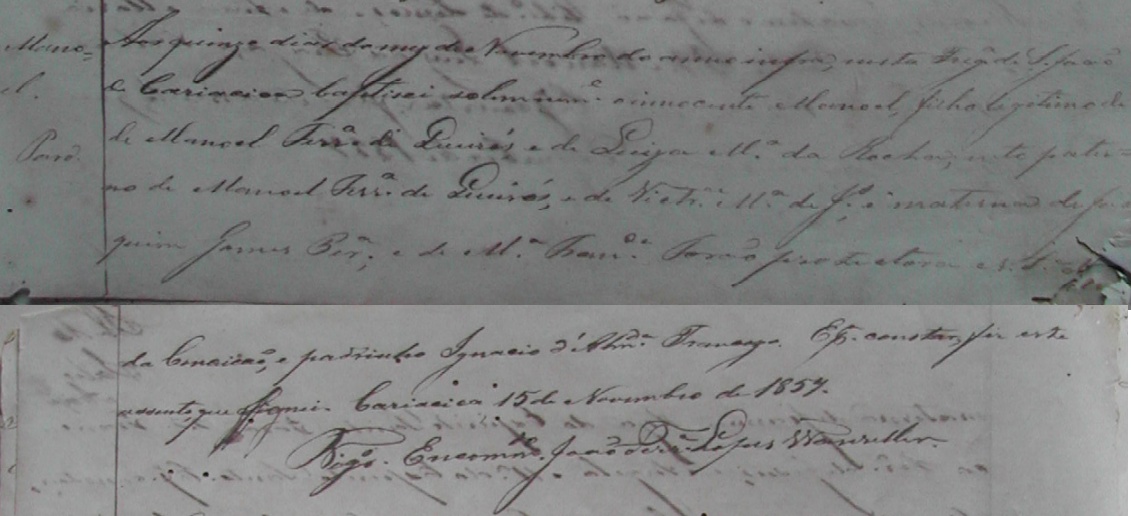 Mano=
el.
Pard.
Aos quinze dias do mez de Novembro do anno infra, nesta Freg.ª de S. João
de Cariacica baptisei solemnem.e o innocente Manoel, filho legitimo de
de Manoel Ferr.ª de Queirós e de Luiza M.ª da Rocha, neto pater-
no de Manoel Ferr.ª de Queirós, e de Victr.ª M.ª de J.s, e materno de Joa
quim Gomes Per.ª, e de M.ª Fran.ca protectora e N. S.ra
da Conceição, e padrinho Ignacio d'Alm.da Tramargo. E p.ª constar, fiz este
assento, que assignei. Cariacica 15 de Novembro de 1857.
Vig.º Encomm.do João Ferr.ª Lopes Wanzeller